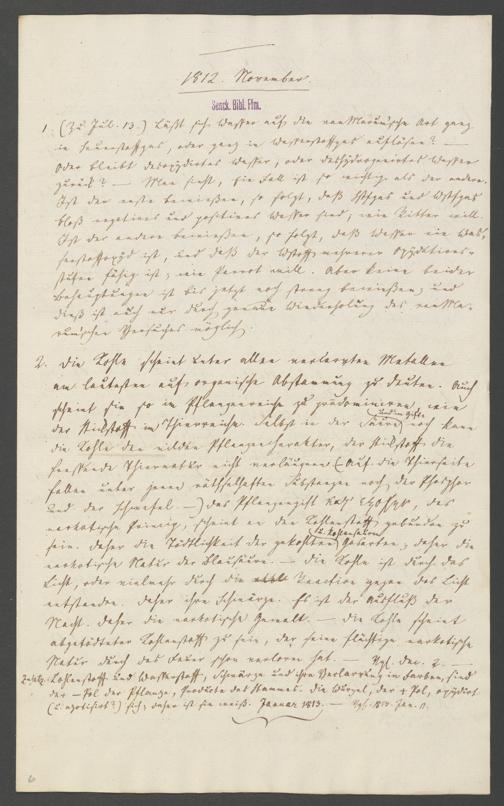 1812. November.
Senck. Bibl. Ffm.
1. (Zu Jul. 13.) Läßt sich Wasser auf die van Marumsche Art ganz
in Sauerstoffgas, oder ganz in Wasserstoffgas auflösen? —
Oder bleibt desoxydirtes Wasser, oder deshydrogenirtes Wasser
zurück? — Man sieht, ein Fall ist so wichtig als der andere.
Ist der erste bewiesen, so folgt, daß und
bloß negatives und positives Wasser sind, wie Ritter will.
Ist der andere bewiesen, so folgt, daß Wasser ein
ist, und daß der mehrerer Oxydations-
stufen fähig ist, wie Parrot will. Aber keine beider
Behauptungen ist bis jetzt noch streng bewiesen, und
dieß ist auch nur durch genaue Wiederholung des van Ma-
rumschen Versuches möglich.
2. Die Kohle scheint unter allen verlarvten Metallen
am lautesten auf organische Abstammung zu deuten. Auch
scheint sie so im Pflanzenreiche zu prädominiren, wie
der Stickstoff im Thierreiche. Selbst in der Säure noch kann
die Kohle den milden Pflanzencharakter, der Stickstoff die
fressende Thiernatur nicht verläugnen. (Auf die Thierseite
fallen unter jenen räthselhaften Substanzen noch der Phosphor
und der Schwefel. —) Das Pflanzengift das
narkotische Prinzip, scheint an den Kohlenstoff gebunden zu
sein. Daher die Tödtlichkeit der gekohlten Gasarten, daher die
u. Kohlensäure
narkotische Natur der Blausäure. — Die Kohle ist durch das
Licht, oder vielmehr durch die Reaction gegen das Licht
entstanden. Daher ihre Schwärze. Es ist der Ausfluß der
Nacht. Daher die narkotische Gewalt. — Die Kohle scheint
abgetödteter Kohlenstoff zu sein, der seine flüchtige narkotische
Natur durch das Feuer schon verloren hat. — Vgl. Dec. 2. —
Zusatz. Kohlenstoff und Wasserstoff, Schwärze und ihre Verlarvung in Farben, sind
der – Pol der Pflanze, Produkte des Stammes. Die Wurzel, der + Pol, oxydirt
(u. azotisirt?) sich, daher ist sie weiß. Januar 1813. — Vgl. 1813. Jan.
6